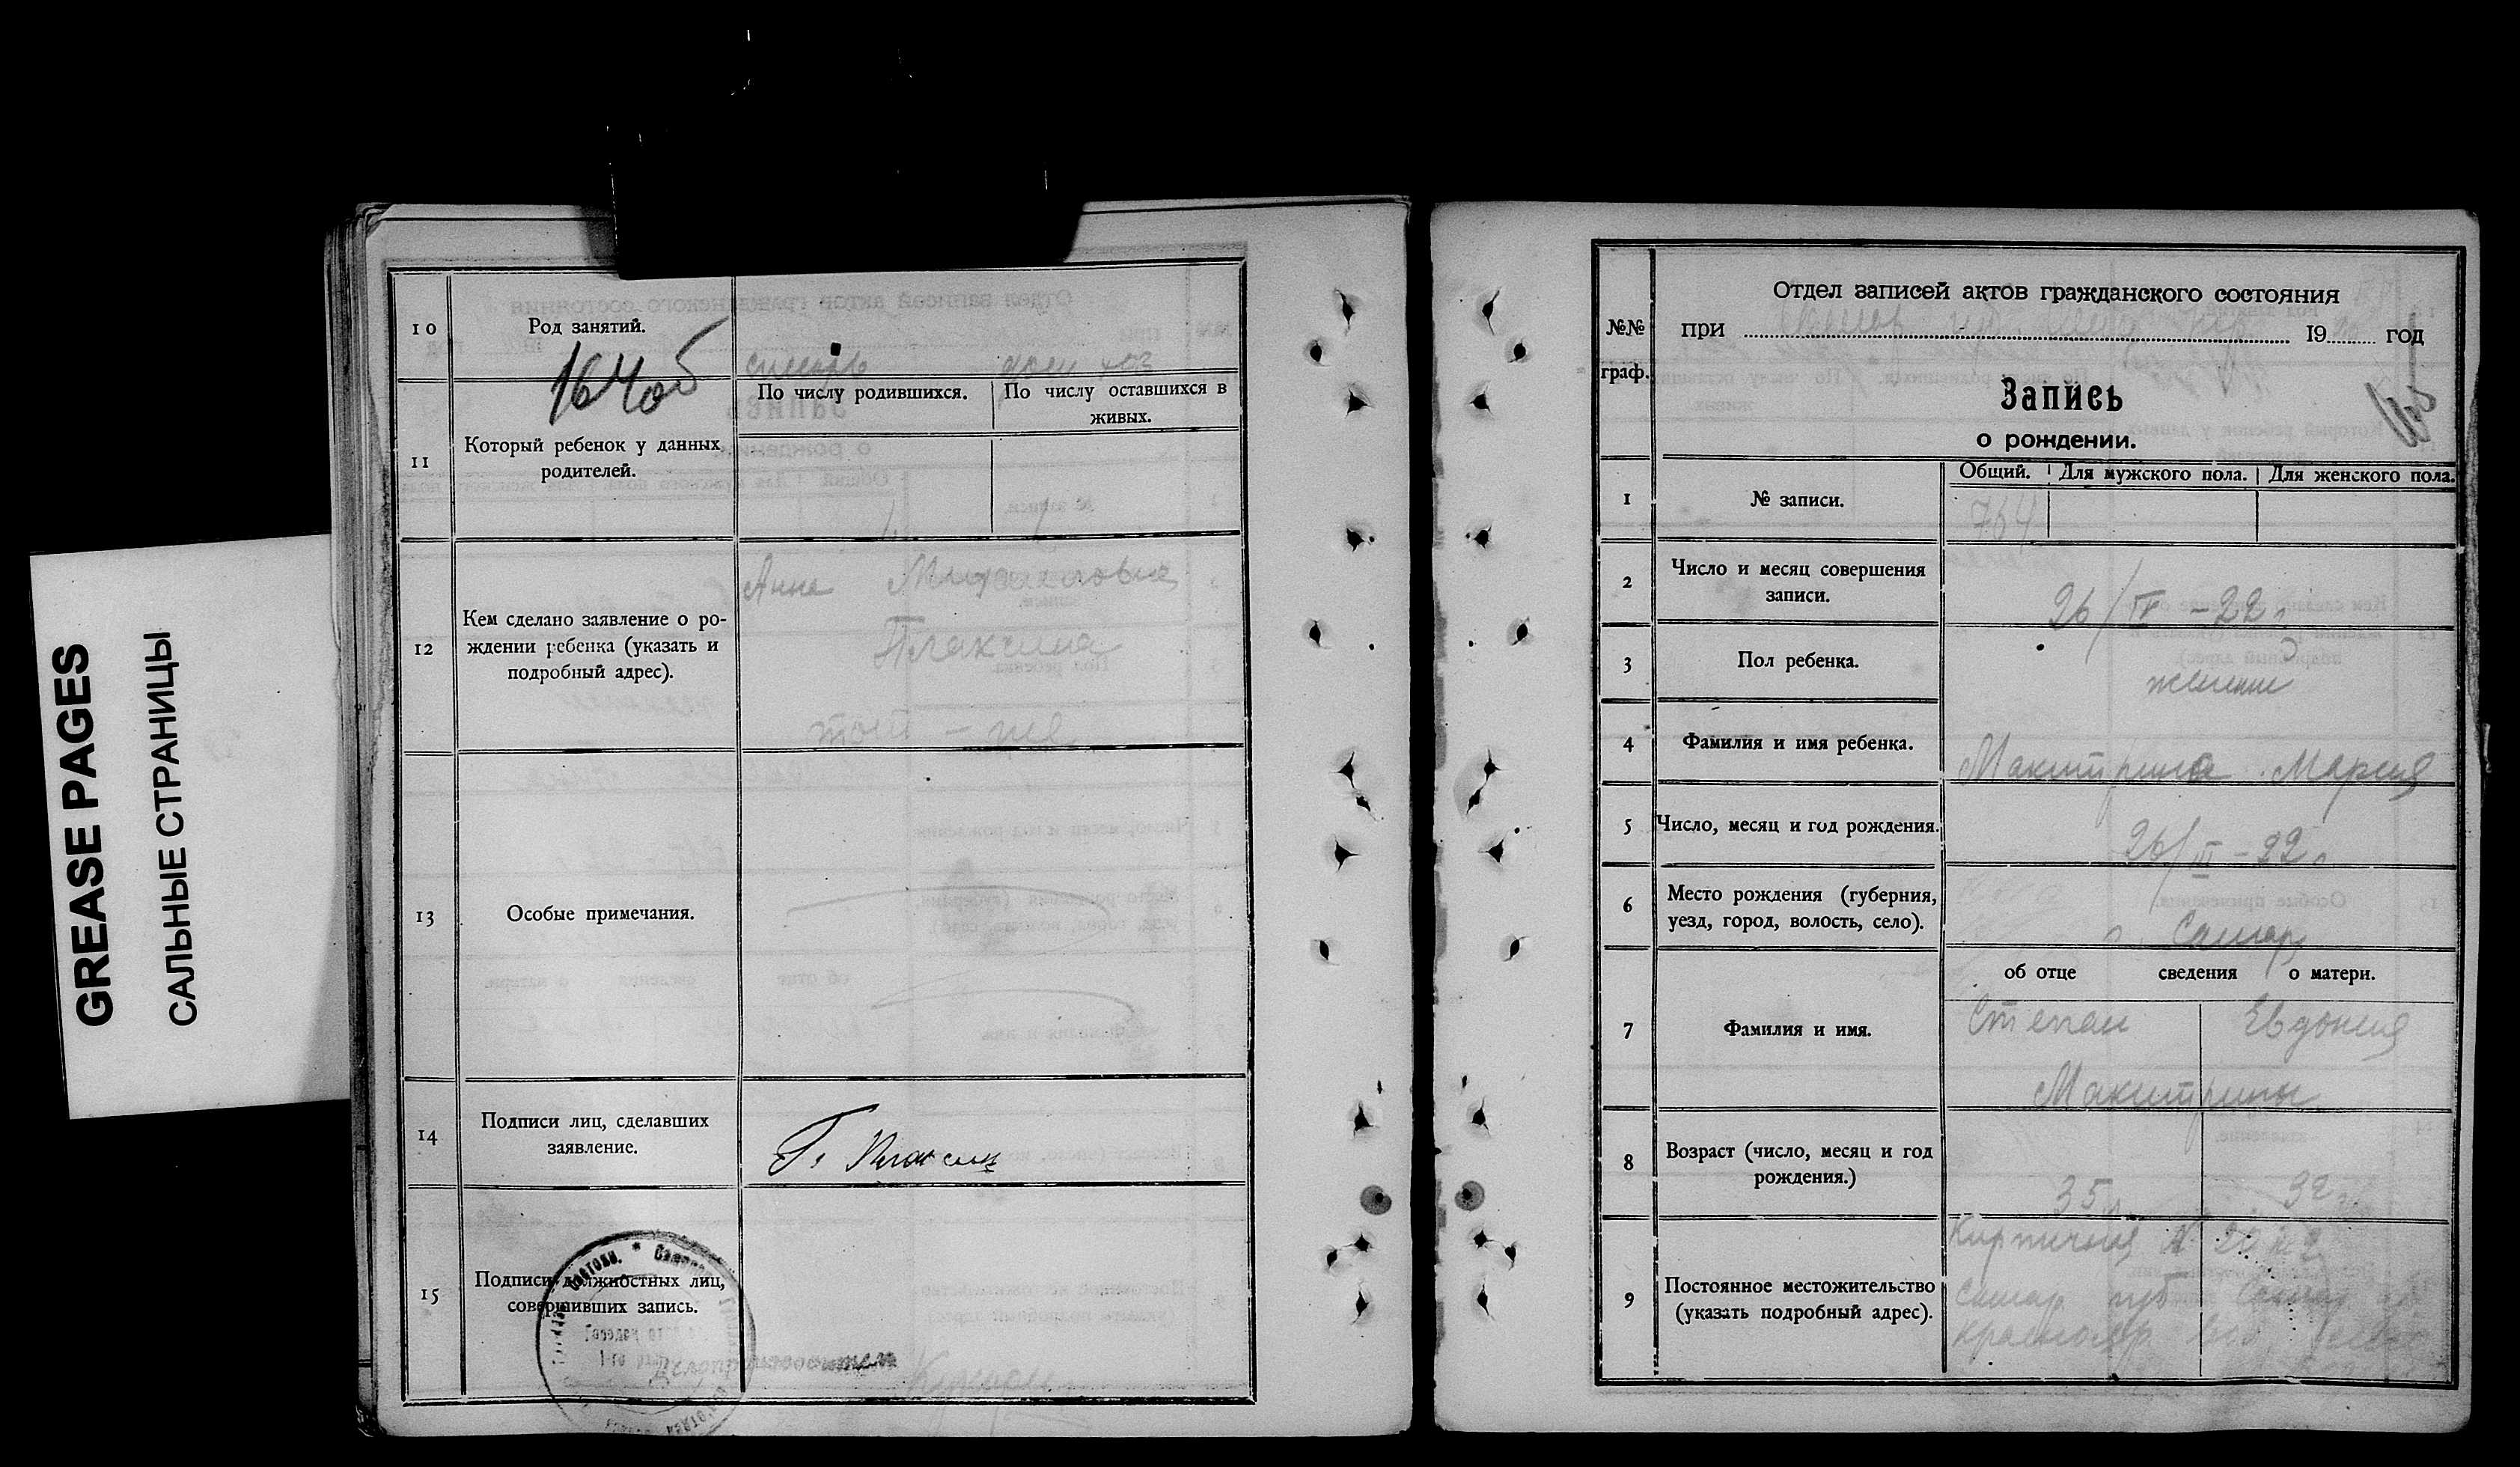 GREASE PAGES
САЛЬНЫЕ СТРАНИЦЫ
10
Род занятий.
164об
слесарь дом хоз
11
Который ребенок у данных
родителей.
По числу родившихся.
По числу оставшихся в
живых.
12
Кем сделано заявление о ро-
ждении ребенка (указать и
подробный адрес).
Анна Михайловна
Плаксина
тот-же
13
Особые примечания.
14
Подписи лиц, сделавших
заявление.
Г. Плаксин
15
Подписи должностных лиц,
совершивших запись.
Делопроизводитель
№№
граф.
Отдел записей актов гражданского состояния
при 19 год
Запись
о рождении.
1
№ записи.
Общий.
Для мужского пола.
Для женского пола.
764
2
Число и месяц совершения
записи.
26/IV-22г
3
Пол ребенка.
женский
4
Фамилия и имя ребенка.
Макитрина Мария
5
Число, месяц и год рождения.
26/III-22г
6
Место рождения (губерния,
уезд, город, волость, село).
г. Самара
об отце сведения о матери.
7
Фамилия и имя.
Степан Евдокия
Макитрины
8
Возраст (число, месяц и год
рождения.)
35 32
9
Постоянное местожительство
(указать подробный адрес).
Кирпичная
Самар губ Самар
Краснояр вол